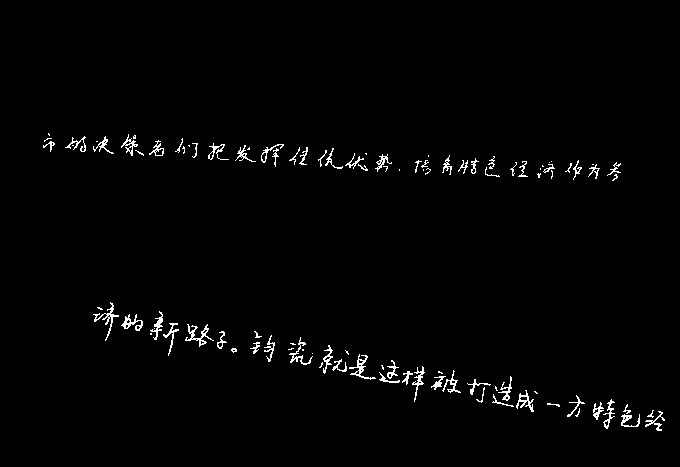 市的决策者们把发挥传统优势、培育特色经济作为务
济的新路子。钧瓷就是这样被打造成一方特色经